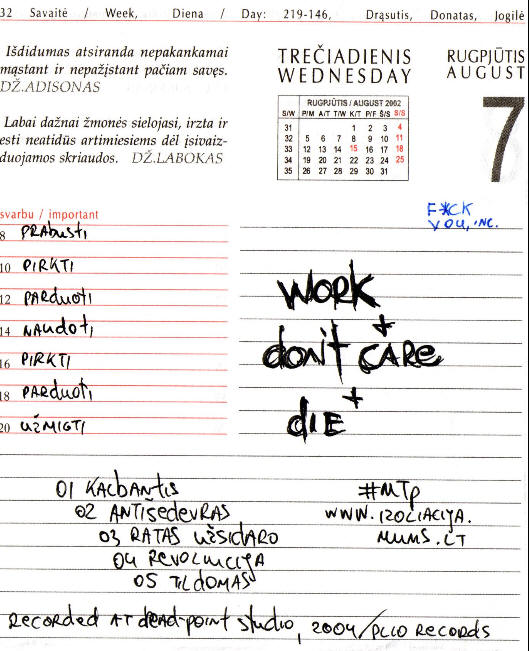 32 Savaitė / Week, Diena / Day: 219-146, Drąsutis, Donatas, Jogilė
Išdidumas atsiranda nepakankamai
mąstant ir nepažįstant pačiam savęs.
DŽ.ADISONAS
Labai dažnai žmonės sielojasi, irzta ir
esti neatidūs artimiesiems dėl įsivaiz-
duojamos skriaudos. DŽ.LABOKAS
TREČIADIENIS
WEDNESDAY
RUGPJŪTIS
AUGUST
7
RUGPJŪTIS / AUGUST 2002
S/W P/M A/T T/W K/T P/F Š/S S/S
31 1 2 3 4
32 5 6 7 8 9 10 11
33 12 13 14 15 16 17 18
34 19 20 21 22 23 24 25
35 26 27 28 29 30 31
F*CK
YOU, INC.
svarbu / important
8 PRAbusti
10 PIRKTI
12 PARduoti
14 NAudoti
16 PIRKTI
18 PARduoti
20 UŽMIGTI
WORK
+
don't CARe
+
dIE
01 KALbANtis
02 ANTIŠedEVRAS
03 RATAS UŽSIdARO
04 REVOLIUCIJA
05 TILdOMAS
#MTP
WWW.IZOLIACIJA.
MUMS.LT
RECORdEd AT dEAd-POINT StudIO, 2004/PLIO RECORdS